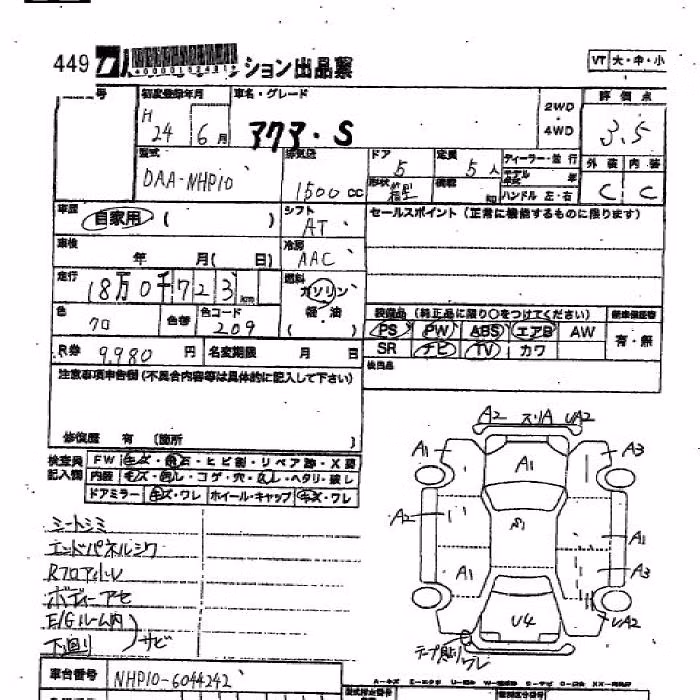 449 ション出品票
VT 大・中・小
号 初度登録年月 車名・グレード 評価点
H 24 6月 アクア・S 2WD 4WD 3.5
型式 排気量 ドア 定員 ディーラー・並行 外装 内装
DAA-NHP10 1500cc 5 5人 モデル 年 C C
形状 箱型 積載 ハンドル 左・右
車歴 自家用 ( ) シフト AT セールスポイント (正常に機能するものに限ります)
車検 年 月( 日) 冷房 AAC
走行 18万0千723km 燃料 ガソリン
軽油 ( )
色 クロ 色替 色コード 209
装備品 (純正品に限り○をつけてください) 新車保証書
PS PW ABS エアB AW 有・無
R券 9,980円 名変期限 月 日 SR ナビ TV カワ
注意事項申告欄 (不具合内容等は具体的に記入して下さい) 検出品
修復歴 有 (箇所 )
検査員 FW キズ・飛石・ヒビ割・リペア跡・X要
記入欄 内装 キズ・汚レ・コゲ・穴・スレ・ヘタリ・破レ
ドアミラー キズ・ワレ ホイール・キャップ キズ・ワレ
A2 スリA UA2
A1 A1 A3
A2 A1
A1 A3
U4 UA2
テープ貼り ワレ
シートシミ
エンドパネルシワ
Rフロア小U
ボディーアセ
E/Gルーム内
下回り サビ
車台番号 NHP10-6044242